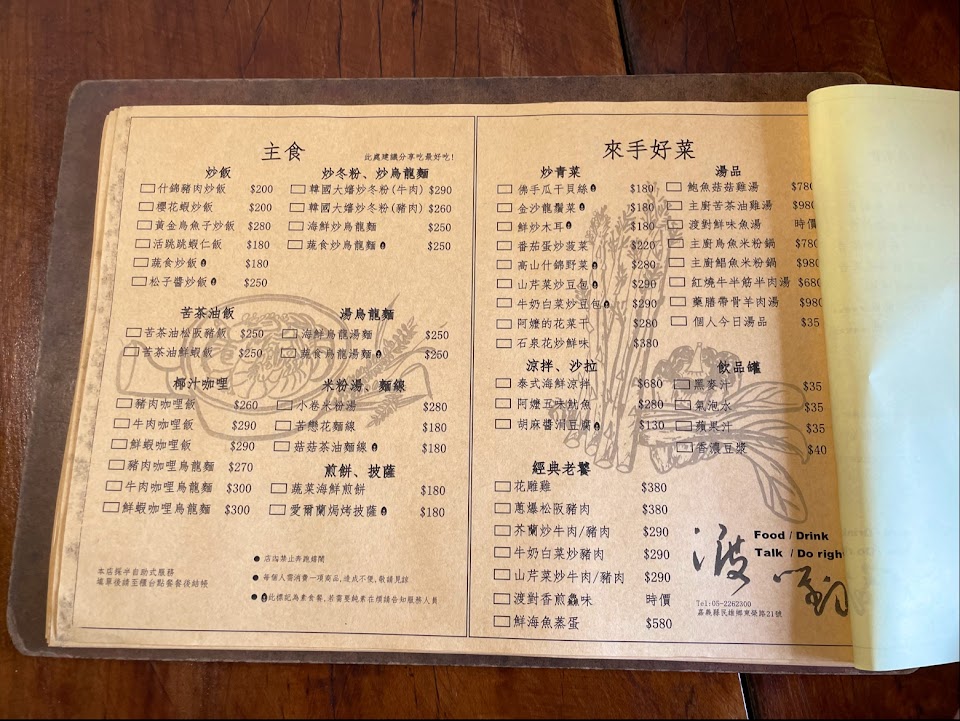 主食
此處建議分享吃最好吃!
炒飯
什錦豬肉炒飯 $200
櫻花蝦炒飯 $200
黃金烏魚子炒飯 $280
活跳跳蝦仁飯 $180
蔬食炒飯 $180
松子醬炒飯 $250
苦茶油飯
苦茶油松阪豬飯 $250
苦茶油鮮蝦飯 $250
椰汁咖哩
豬肉咖哩飯 $260
牛肉咖哩飯 $290
鮮蝦咖哩飯 $290
豬肉咖哩烏龍麵 $270
牛肉咖哩烏龍麵 $300
鮮蝦咖哩烏龍麵 $300
炒冬粉、炒烏龍麵
韓國大嬸炒冬粉(牛肉) $290
韓國大嬸炒冬粉(豬肉) $260
海鮮炒烏龍麵 $250
蔬食炒烏龍麵 $250
湯烏龍麵
海鮮烏龍湯麵 $250
蔬食烏龍湯麵 $250
米粉湯、麵線
小卷米粉湯 $280
苦戀花麵線 $180
菇菇茶油麵線 $180
煎餅、披薩
蔬菜海鮮煎餅 $180
愛爾蘭焗烤披薩 $180
本店採半自助式服務
填單後請至櫃台點餐餐後結帳
● 店內禁止奔跑嬉鬧
● 每個人需消費一項商品,造成不便,敬請見諒
● 此標記為素食餐,若需要純素在櫃請告知服務人員
來手好菜
炒青菜
佛手瓜干貝絲 $180
金沙龍鬚菜 $180
鮮炒木耳 $180
番茄蛋炒菠菜 $220
高山什錦野菜 $280
山芹菜炒豆包 $290
牛奶白菜炒豆包 $290
阿嬤的花菜干 $280
石泉花炒鮮味 $380
涼拌、沙拉
泰式海鮮涼拌 $680
阿嬤五味魷魚 $280
胡麻醬涓豆腐 $130
經典老饕
花雕雞 $380
蔥爆松阪豬肉 $380
芥蘭炒牛肉/豬肉 $290
牛奶白菜炒豬肉 $290
山芹菜炒牛肉/豬肉 $290
渡對香煎鱻味 時價
鮮海魚蒸蛋 $580
湯品
鮑魚菇菇雞湯 $780
主廚苦茶油雞湯 $980
渡對鮮味魚湯 時價
主廚烏魚米粉鍋 $780
主廚鯧魚米粉鍋 $980
紅燒牛半筋半肉湯 $680
藥膳帶骨羊肉湯 $980
個人今日湯品 $35
飲品罐
黑麥汁 $35
氣泡水 $35
蘋果汁 $35
香濃豆漿 $40
渡對
Food / Drink
Talk / Do righ
Tel:05-2262300
嘉義縣民雄鄉東榮路21號